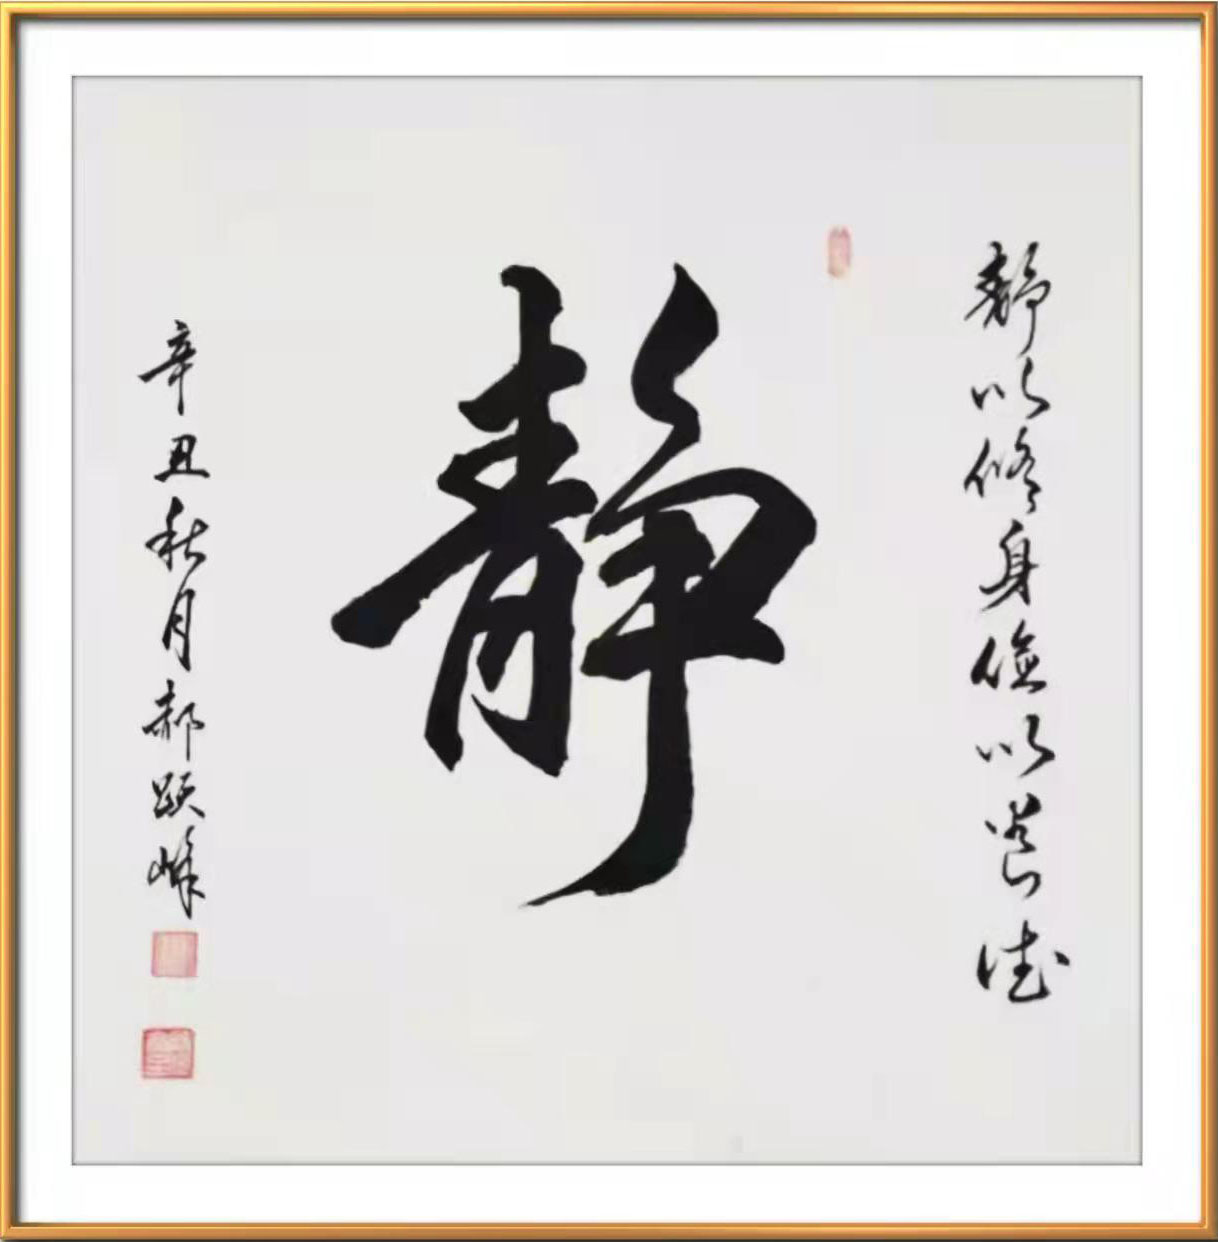 静以修身俭以养德
静
辛丑秋月郝跃峰